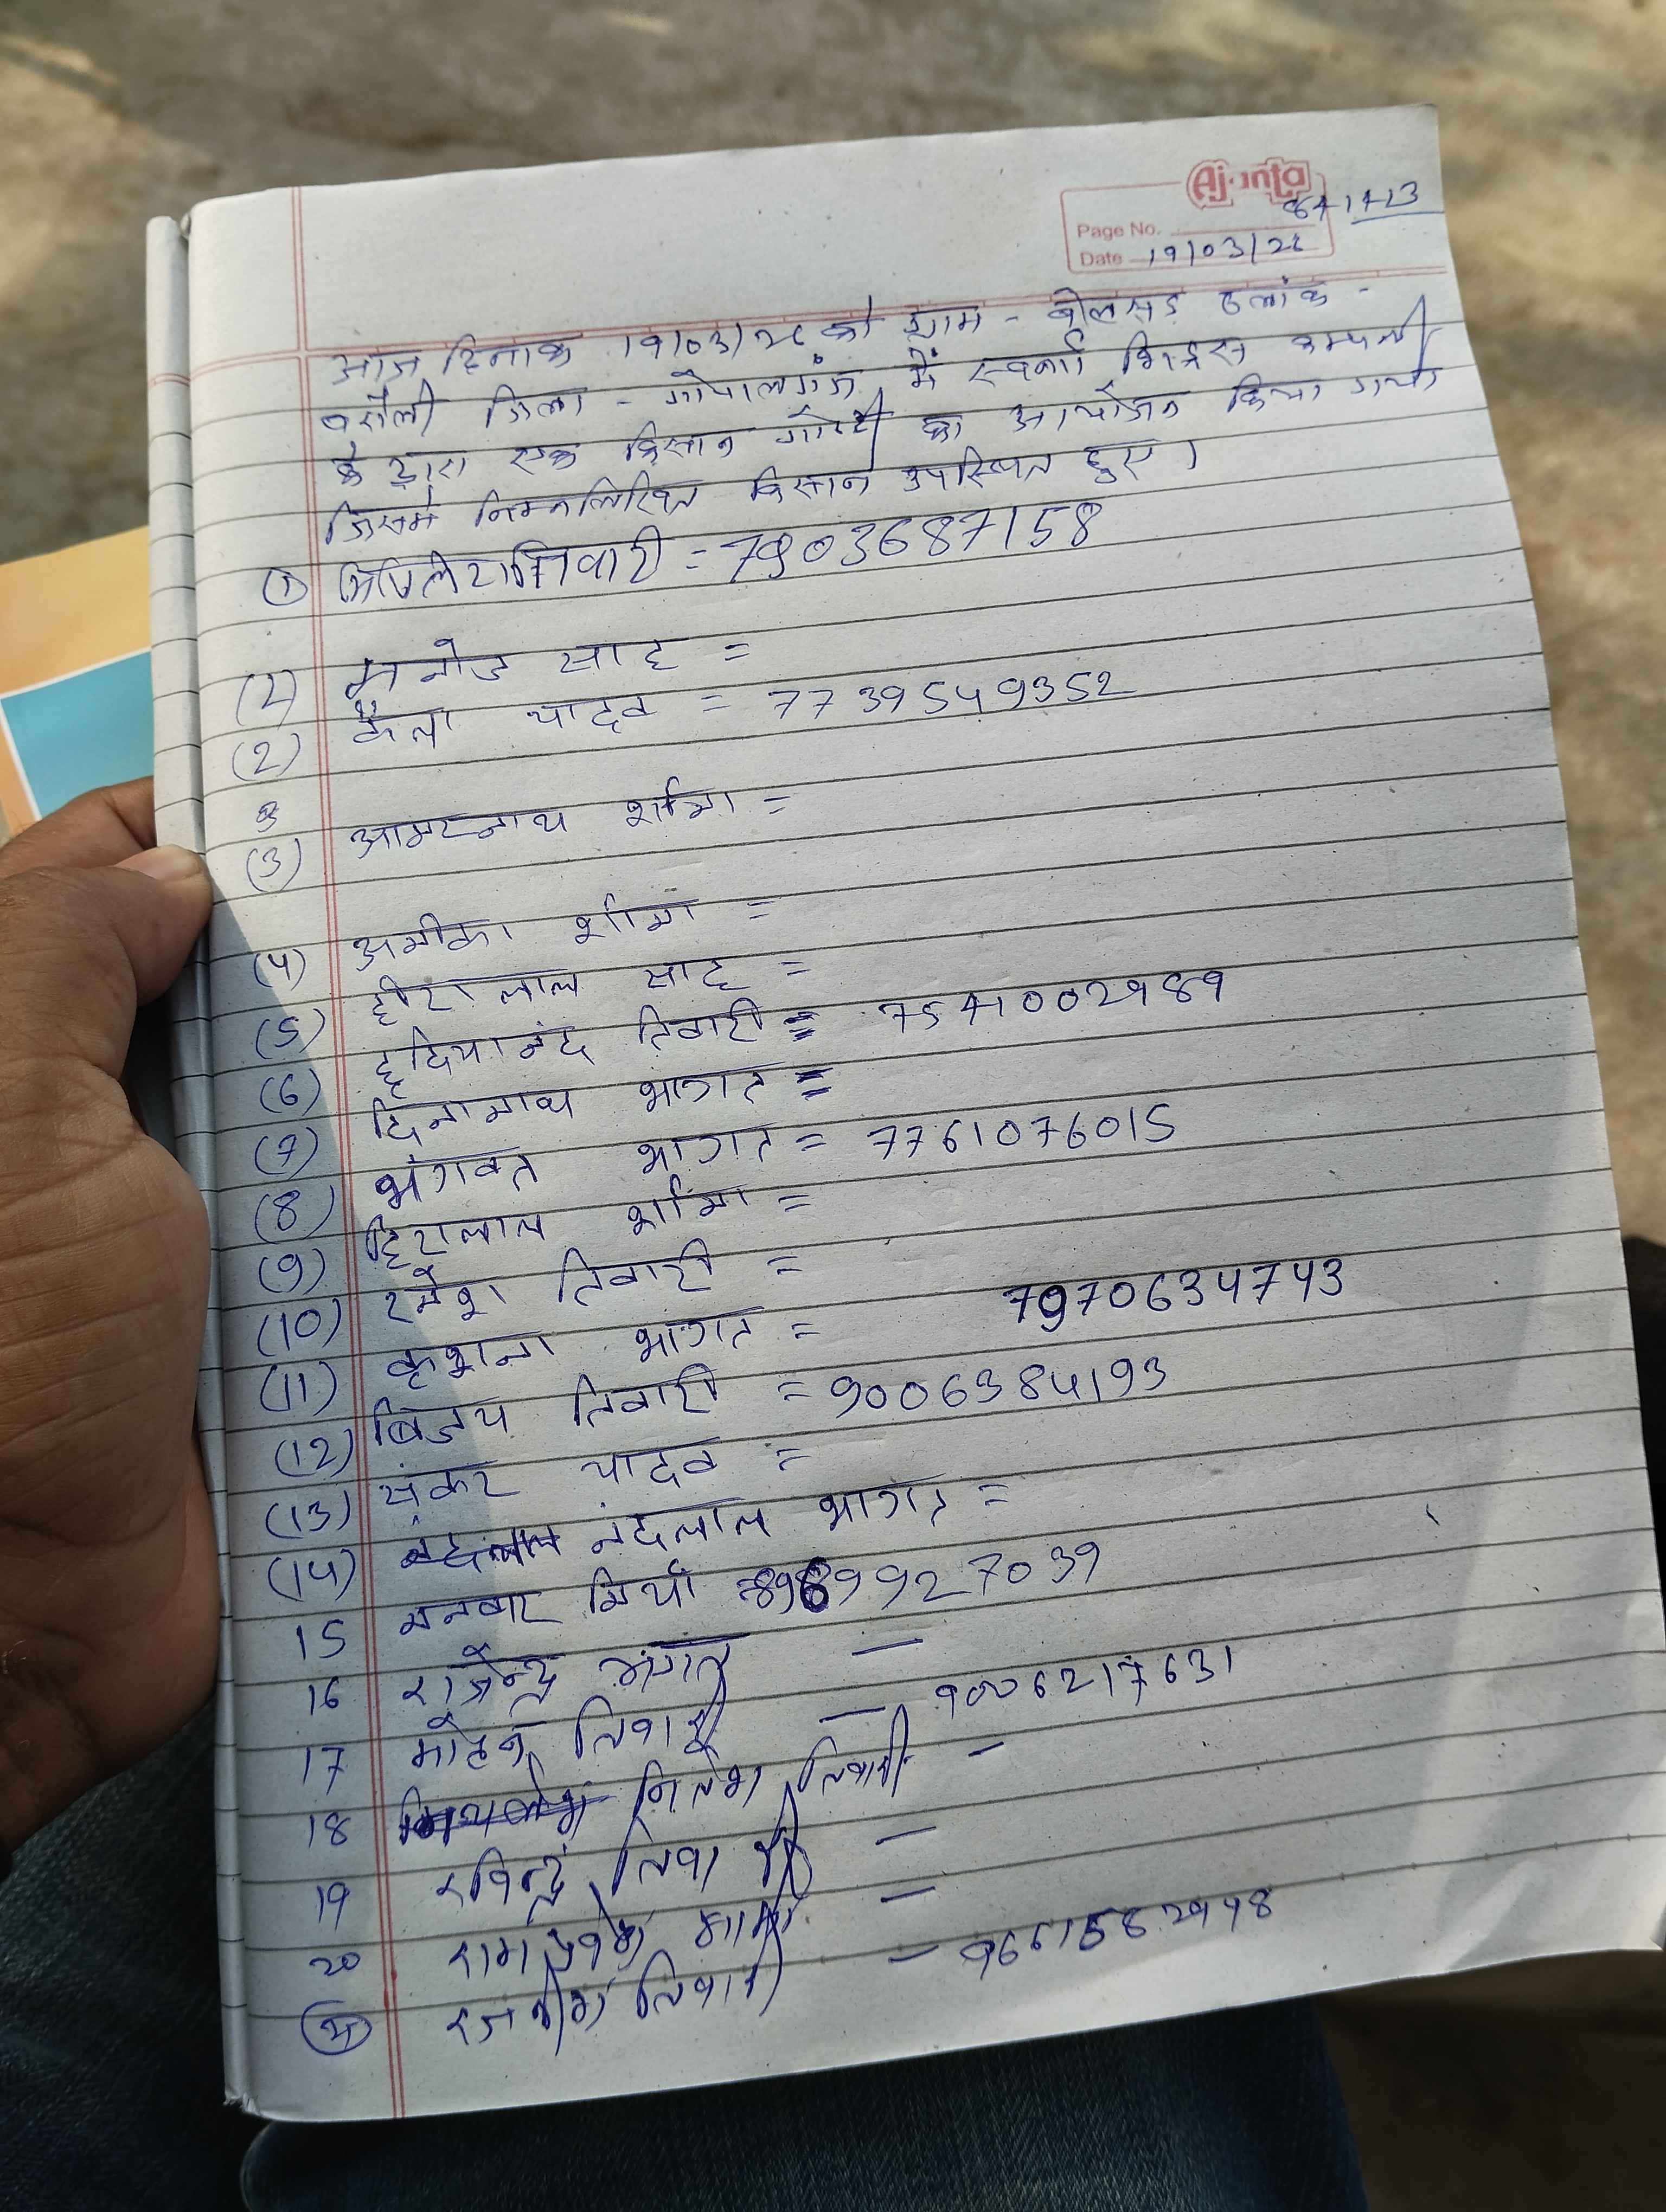 Ajanta
841413
Page No.
Date 19/03/26
आज दिनांक 19/03/26 को ग्राम - बेलसड़ ब्लांक -
बरौली जिला - गोपालगंज में स्वर्णा मिक्स कम्पनी
के द्वारा एक किसान गोष्ठी का आयोजन किया गया
जिसमे निम्नलिखित किसान उपस्थित हुए।
① तिवारी = 7903687158
(1) मनोज साह =
(2) यादव = 7739549352
(3) आमरनाथ र्शामा =
(4) अमीका र्शामा =
(5) हीरा लाल साह =
(6) हृदियानंद तिवारी = 7541002989
(7) दिनानाथ भागत =
(8) भंगवत भागत = 7761076015
(9) हिरालाल र्शामा =
(10) रमेश तिवारी =
(11) कृशना भागत = 7970634743
(12) बिजय तिवारी = 9006384193
(13) संकर यादव =
(14) नंदलाल भागत =
15 मनवार मियाँ = 8969927039
16 राजेन्द्र भगत —
17 मोहन तिवारी — 9006217631
18 नितेश तिवारी —
19 रविन्द्र तिवारी —
20 राम प्रवेश —
रजनीश तिवारी — 9661582948